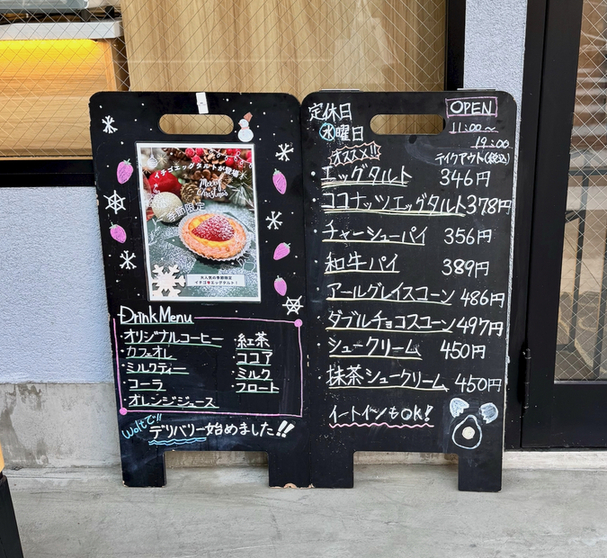 イチゴエッグタルトが登場！
Merry
Christmas
季節限定
大人気の季節限定
イチゴエッグタルト！
Drink Menu
・オリジナルコーヒー
・カフェオレ
・ミルクティー
・コーラ
・オレンジジュース
・紅茶
・ココア
・ミルク
・フロート
Woltで!!
デリバリー始めました!!
定休日
水曜日
OPEN
11:00～
19:00
オススメ!!
テイクアウト(税込)
・エッグタルト 346円
・ココナッツエッグタルト 378円
・チャーシューパイ 356円
・和牛パイ 389円
・アールグレイスコーン 486円
・ダブルチョコスコーン 497円
・シュークリーム 450円
・抹茶シュークリーム 450円
イートインもOK!